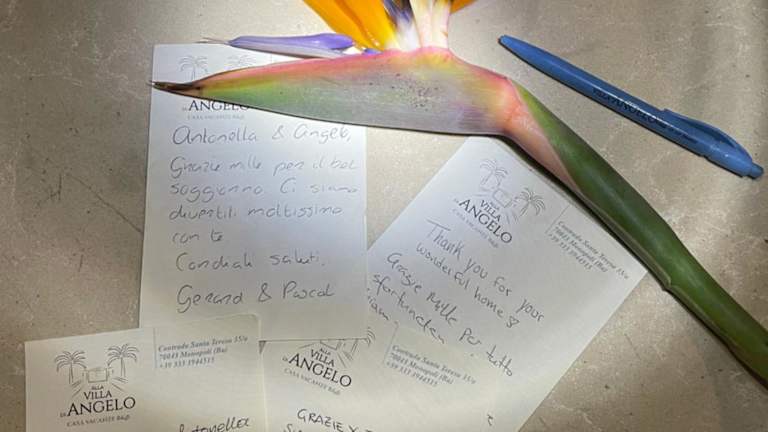 ANGELO
CASA VACANZE B&B
Antonella & Angelo,
Grazie mille per il bel
soggiorno Ci siamo
divertiti moltissimo
con te
Cordiali saluti.
Gerard & Pascal
ALLA
VILLA
DI ANGELO
CASA VACANZE B&B
Contrada Santa Teresa 35/a
70043 Monopoli (Ba)
+39 333 3944515
Thank you for your
wonderful home ♡
Grazie Mille per tutto
ALLA
VILLA
DI ANGELO
CASA VACANZE B&B
Contrada Santa Teresa 35/a
70043 Monopoli (Ba)
+39 333 3944515
Antonella
ALLA
VILLA
DI ANGELO
CASA VACANZE B&B
Contrada Santa Teresa 35/a
70043 Monopoli (Ba)
+39 333 3944515
GRAZIE X